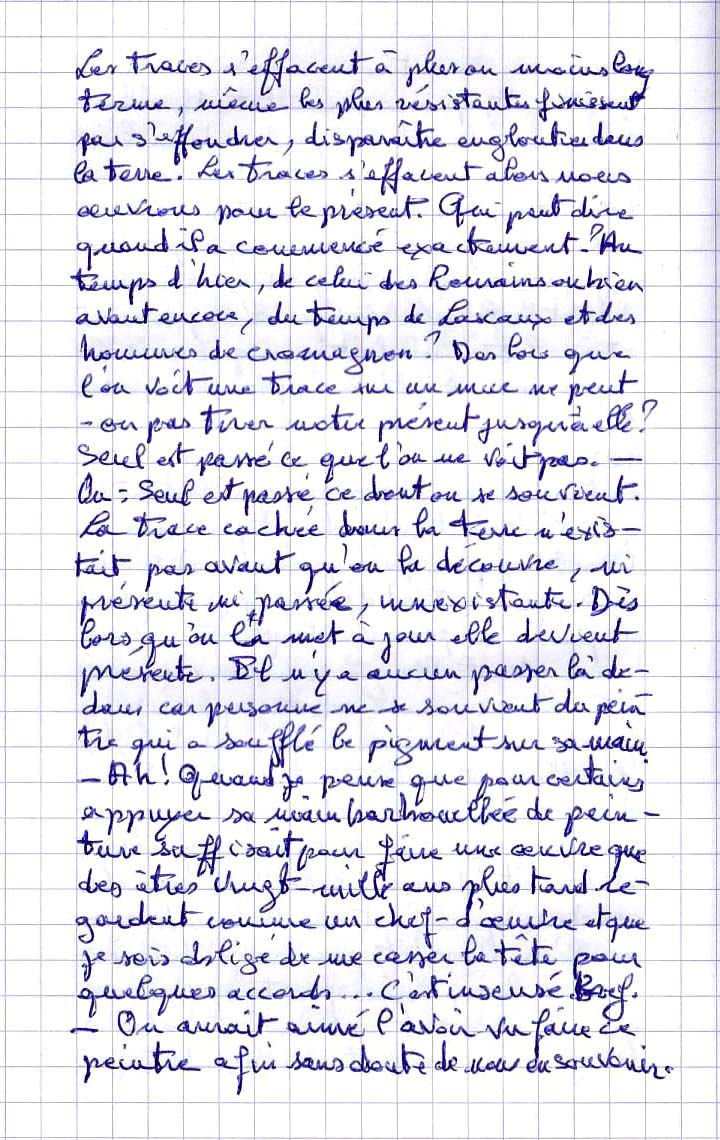 Les traces s'effacent à plus ou moins long
terme, même les plus résistantes finissent
par s'effondrer, disparaître engloutie dans
la terre. Les traces s'effacent alors nous
œuvrons pour le présent. Qui peut dire
quand il a commencé exactement ? Au
temps d'hier, de celui des Romains ou bien
avant encore, du temps de Lascaux et des
hommes de cromagnon ? Des lors que
l'on voit une trace sur un mur ne peut
-on pas tirer notre présent jusqu'à elle ?
Seul est passé ce que l'on ne voit pas. —
Ou = Seul est passé ce dont on se souvient.
La trace cachée dans la terre n'exis-
tait pas avant qu'on la découvre, ni
présente ni passée, innexistante. Dès
lors qu'on la met à jour elle devient
présente. Il n'y a aucun passer là de-
dans car personne ne se souvient du pein
tre qui a soufflé le pigment sur sa main.
— Ah ! Quand je pense que pour certains
appuyer sa main barbouillée de pein-
ture suffisait pour faire une œuvre que
des êtres vingt-mille ans plus tard re-
gardent comme un chef-d'œuvre et que
je sois obligé de me casser la tête pour
quelques accords... C'est insensé. Bref.
— On aurait aimé l'avoir vu faire ce
peintre afin sans doute de nous en souvenir.